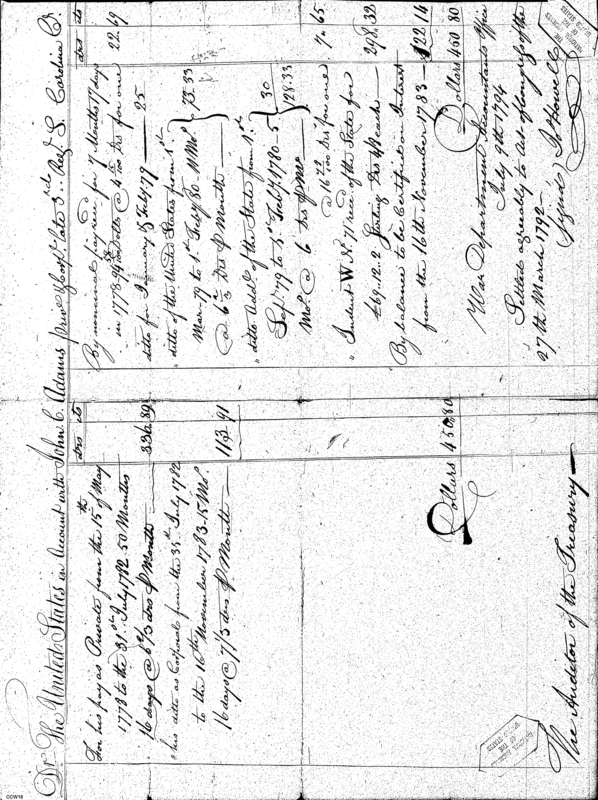 Dr. The United States in Account with John C. Adams priv. & Corpl. late 3rd Regt. S. Carolina Cr.
drs cts
For his pay as Private from the 15th of May
1778 to the 31st July 1782. 50 Months
16 days @ 6 2/3 drs P Month — 336.89
his ditto as Corporal from the 31st July 1782
to the 16th November 1783. 15 Mo.
16 days @ 7 1/3 drs P Month — 113.91
Dollars 450.80
The Auditor of the Treasury —
drs cts
By nominal pay recd. for 7 Months 17 days
in 1778 dolls @ for one 22.19
ditto for January & Feby 79 — 25
" ditto of the United States from 1st
Mar. 79 to 1st Feby 80. 11 Mos. } 73.33
@ 6 2/3 drs P Month —
" ditto Addl. of the State from 1st
Sep. 79 to 1st Feby 1780. 5 } 30
Mo. @ 6 drs P Mo. 128.33
@ 16 73/100 drs for one 7.65
" Indent W No. 71 recd. of the State for
£69.12.2 Sterling Drs 4/8 each — 298.32
By balance to be Certified on Interest
from the 16th November 1783 — 122.14
Dollars 450 80
War Department Accountants Office
July 9th 1794
Settled agreeably to Act of Congress of the
27th March 1792 —
Signed J. Howell
CCW18